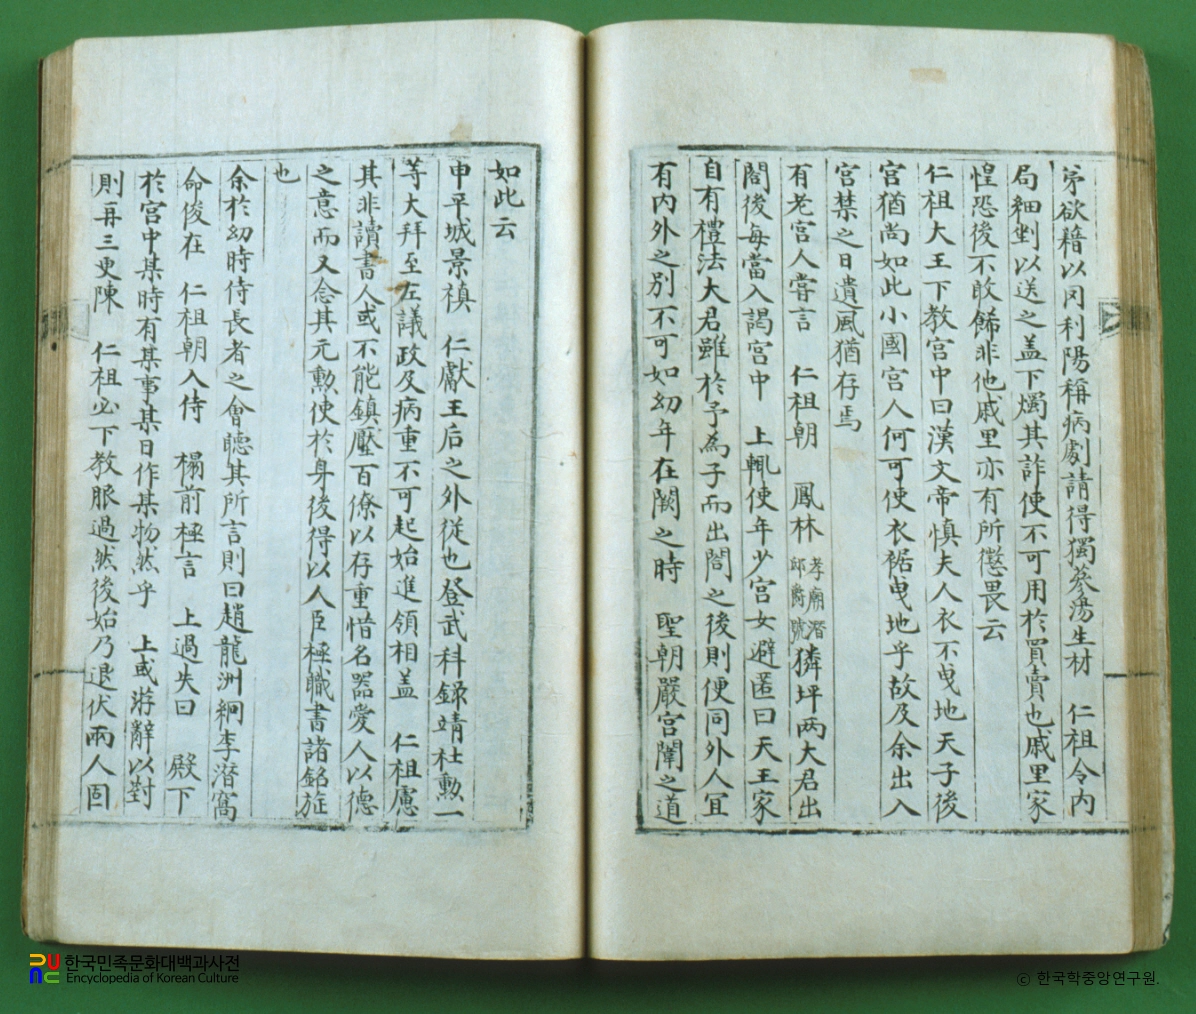 弟欲藉以罔利陽稱病劇請得獨蔘湯生材 仁祖令內
局細剉以送之盖下燭其詐使不可用於買賣也戚里家
惶恐後不敢餙非他戚里亦有所懲畏云
仁祖大王下教宮中曰漢文帝慎夫人衣不曳地天子後
宮猶尚如此小國宮人何可使衣裾曳地乎故及余出入
宮禁之日遺風猶存焉
有老宮人嘗言 仁祖朝 鳳林孝廟潛邸爵號獜坪两大君出
閤後每當入謁宮中 上輒使年少宮女避匿曰天王家
自有禮法大君雖於予為子而出閤之後則便同外人冝
有內外之別不可如幼年在闕之時 聖朝嚴宮闈之道
如此云
申平城景禛 仁獻王后之外從也登武科錄靖社勳一
等大拜至左議政及病重不可起始進領相盖 仁祖慮
其非讀書人或不能鎮壓百僚以存重惜名器愛人以德
之意而又念其元勳使於身後得以人臣極職書諸銘旌
也
余於幼時侍長者之會聽其所言則曰趙龍洲絅李潛窩
命俊在 仁祖朝入侍 榻前極言 上過失曰 殿下
於宮中某時有某事某日作某物然乎 上或游辭以對
則再三更陳 仁祖必下教服過然後始乃退伏兩人固
한국민족문화대백과사전
Encyclopedia of Korean Culture
© 한국학중앙연구원.